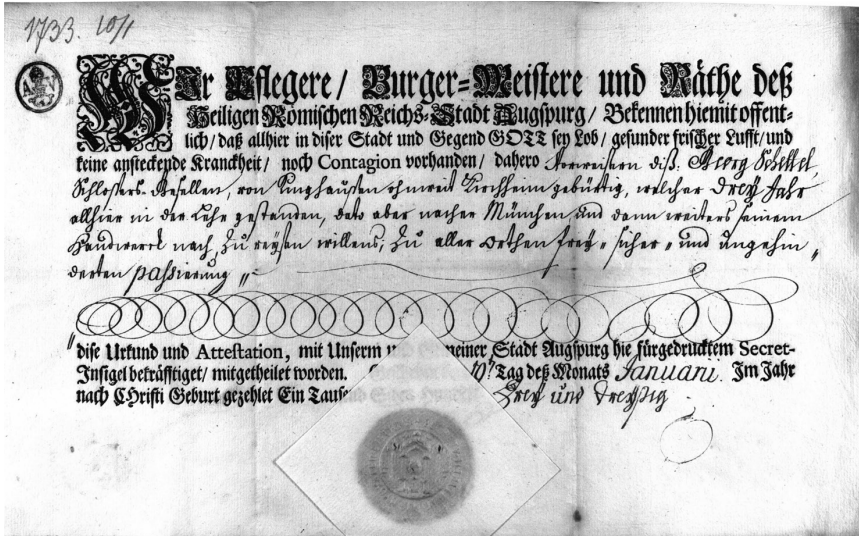 1733. 10/1
A V
WIr Pflegere / Burger-Meistere und Räthe deß
Heiligen Römischen Reichs-Stadt Augspurg / Bekennen hiemit offent-
lich / daß allhier in diser Stadt und Gegend GOTT sey Lob / gesunder frischer Lufft / und
keine ansteckende Kranckheit / noch Contagion vorhanden / dahero Vorweisern diß. Georg
Schlossers-Gesellen, von ohnweit Kirchheim gebürtig, welcher Drey Jahr
allhier in der Lehr gestanden, dato aber nacher München und dann weiters seinem
Handwerck nach, zu reysen willens, zu aller Orthen frey- sicher- und ungehin„
derten passierung„
„dise Urkund und Attestation, mit Unserm und gemeiner Stadt Augspurg hie fürgedrucktem Secret-
Insigel bekräfftiget / mitgetheilet worden. 10ṭ Tag deß Monats Januarii. Im Jahr
nach CHristi Geburt gezehlet Ein Tause Drey und Dreyßig.